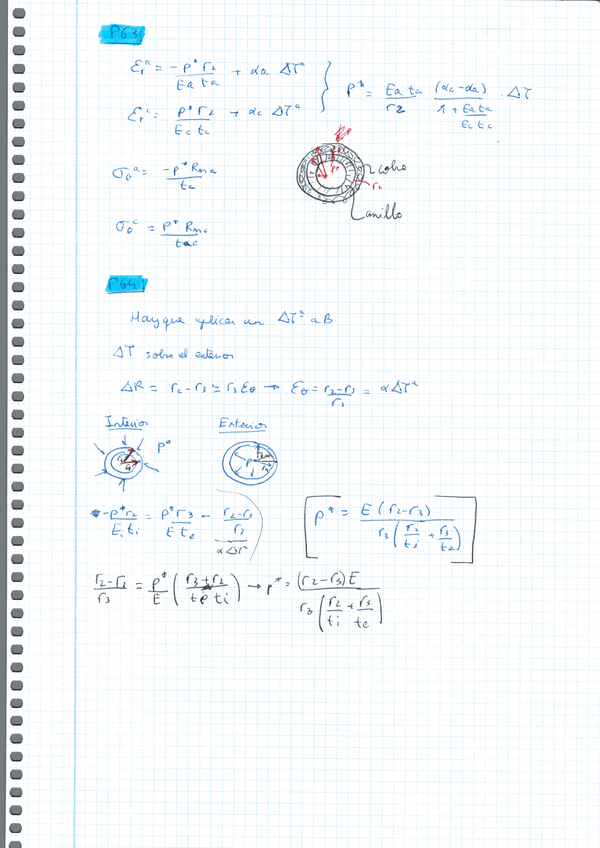 P63
ε_r^a = -P* r2 / (Ea ta) + αa ΔT^a
ε_r^c = P* r2 / (Ec tc) + αc ΔT^a
P* = (Ea ta / r2) · (αc - αa) / (1 + Ea ta / (Ec tc)) · ΔT
σ_θ^a = -P* Rma / ta
cobre
r2
anillo
σ_θ^c = P* Rmc / tc
P64
Hay que aplicar un ΔT^a a B
ΔT sobre el exterior
ΔR = r2 - r3 = r3 εθ → εθ = (r2 - r3) / r3 = α ΔT^a
Interior Exterior
P*
P
-P* r2 / (Ei ti) = P* r3 / (E te) - (r2 - r3) / r3
α ΔT
P* = E (r2 - r3) / (r3 (r2/ti + r3/te))
(r2 - r3) / r3 = P*/E (r3/te + r2/ti) → P* = (r2 - r3) E / (r3 (r2/ti + r3/te))